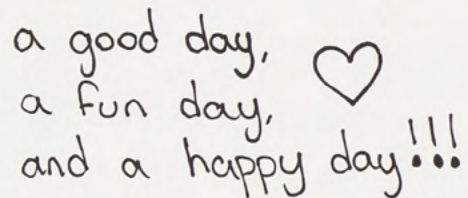 a good day,
a fun day,
and a happy day!!!